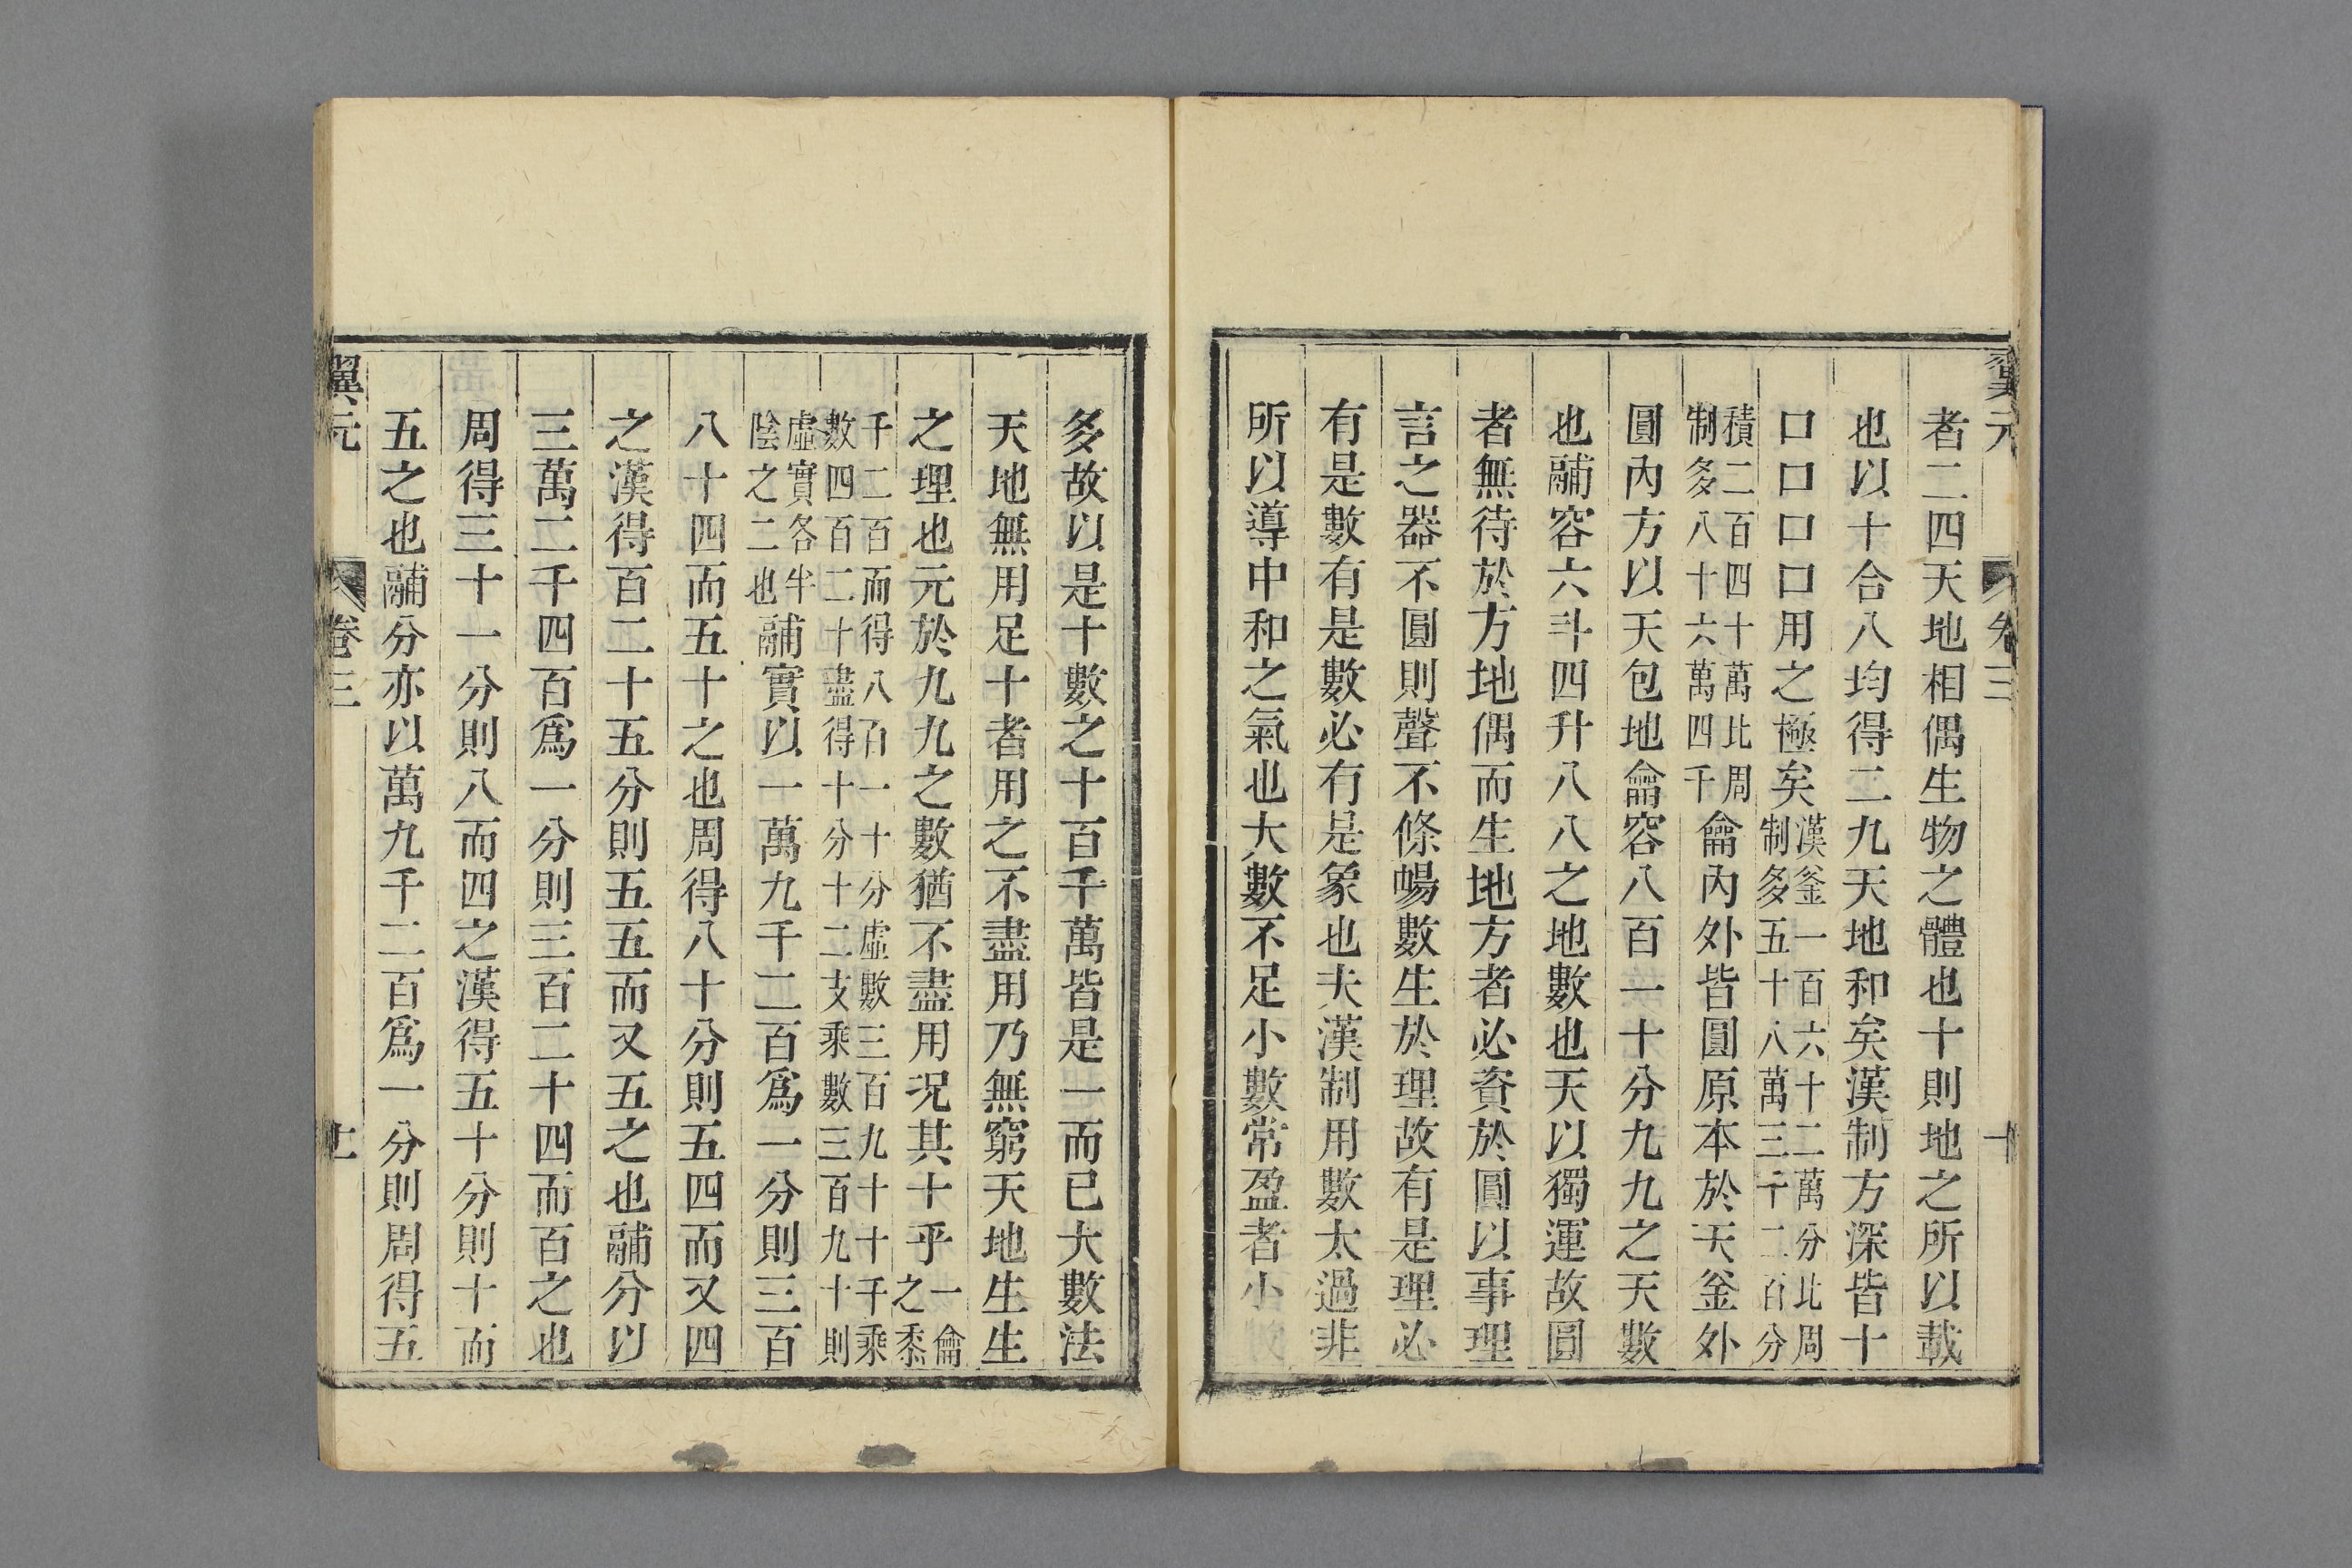 翼元 卷三 十
者二四天地相偶生物之體也十則地之所以載
也以十合八均得二九天地和矣漢制方深皆十
口口口口用之極矣漢釜一百六十二萬分比周制多五十八萬三千二百分
積二百四十萬比周制多八十六萬四千龠內外皆圓原本於天釜外
圓內方以天包地龠容八百一十分九九之天數
也鬴容六斗四升八八之地數也天以獨運故圓
者無待於方地偶而生地方者必資於圓以事理
言之器不圓則聲不條暢數生於理故有是理必
有是數有是數必有是象也夫漢制用數太過非
所以導中和之氣也大數不足小數常盈者小
多故以是十數之十百千萬皆是一而已大數法
天地無用足十者用之不盡用乃無窮天地生生
之理也元於九九之數猶不盡用況其十乎一龠之黍
千二百而得八百一十分虛數三百九十十千乘數四百二十盡得十分十二支乘數三百九十則
虛實各半陰之二也鬴實以一萬九千二百爲一分則三百
八十四而五十之也周得八十分則五四而又四
之漢得百二十五分則五五而又五之也鬴分以
三萬二千四百爲一分則三百二十四而百之也
周得三十一分則八而四之漢得五十分則十而
五之也鬴分亦以萬九千二百爲一分則周得五
翼元 卷三 十一